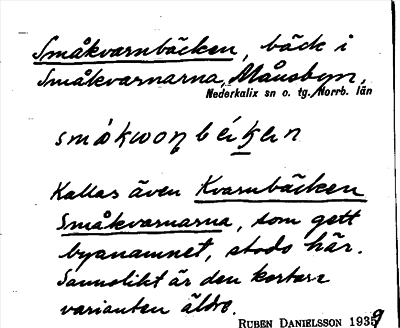 Småkvarnbäcken, bäck i
Småkvarnarna, Månsbyn,
Nederkalix sn o. tg. Norrb. län
småkwoṇbéken
Kallas även Kvarnbäcken
Småkvarnarna, som gett
bynamnet, stodo här.
Sannolikt är den kortare
varianten äldre.
RUBEN DANIELSSON 1939